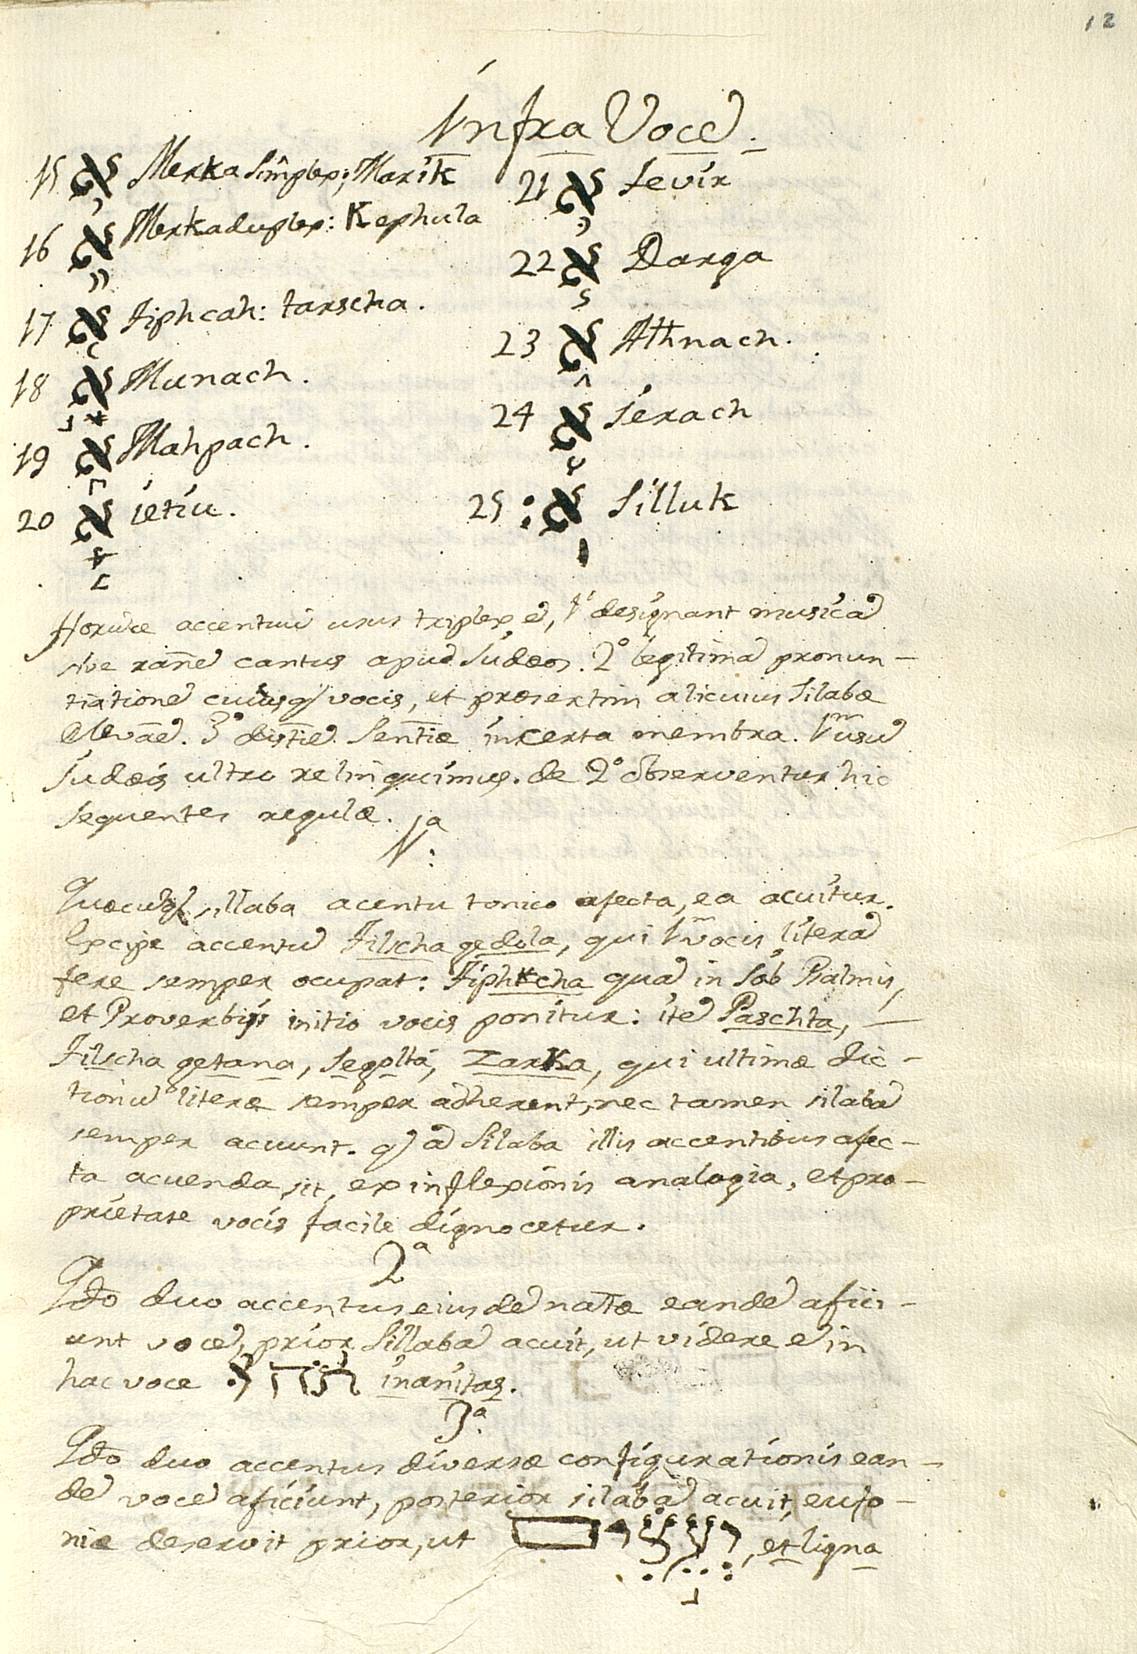 12
Infra Vocē.
15 א֥ Merka simplex; Marik
16 א֦ Merka duplex: Kephula
17 א֖ Tiphcah: tarscha.
18 א֣ Munach.
19 א֤ Mahpach.
20 א֚ ietiu.
21 א֛ tevir
22 א֧ Darga
23 א֑ Athnach.
24 א֪ ierach
25 אֽ: Silluk
Horūce accentuū usus triplex ē, 1º designant musicā
sive rañe cantus apud Iudæos. 2º legitimā pronun-
tiationē cuiusq; vocis, et præsertim alicuius silabæ
elevãe. 3º distīē. Sentīæ incerta membra. 1m usū
Iudæis ultro relinquimus. de 2º observentur hic
sequentes regulæ.
1ª:
Quæcūq; sillaba acentu tonico afecta, ea acuitur.
Excipe accentū Tilscha gedola, qui 1m vocis literā
fere semper ocupat: Tiphkcha quæ in Iob Psalmis,
et Proverbijs initio vocis ponitur: itē Paschta, —
Tilscha qetana, segolta, Zarka, qui ultimæ dic-
tionū literæ semper adherent, nec tamen silabā
semper acuunt. q) ā silaba illis accentibus afec-
ta acuenda sit, ex inflexionis analogia, et pro-
prietate vocis facile dignocetur.
2ª
Qdō duo accentus eiusdē natæ eandē afici-
unt vocē, prior sillabā acuit, ut videre ē in
hac voce תֹּהוּ inanitas.
3ª.
Qdō duo accentus diversæ configurationis ean-
dē vocē aficiunt, posterior silabā acuit, eufo-
niæ deservit prior, ut וְעֵצִים, et ligna